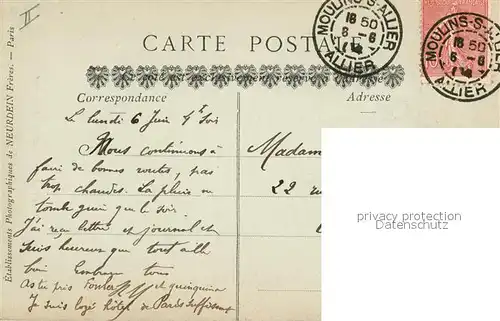 II
MOULINS-S-ALLIER
16 50
6 - 6
ALLIER
MOULINS-S-ALLIER
16 50
6 - 6
ALLIER
CARTE POSTALE
Ce côté est exclusivement réservé à l'adresse
Correspondance
Adresse
Établissements Photographiques de NEURDEIN Frères. — Paris
Le lundi 6 Juin Soir
Nous continuons à
faire de bonnes routes, pas
trop chaudes. La pluie ne
tombe que le soir.
J'ai reçu lettre et journal et
suis heureux que tout aille
bien Embrasse tous
As tu pris et quinquina
Je suis logé hôtel de Paris
Madam
22 ru
privacy protection
Datenschutz